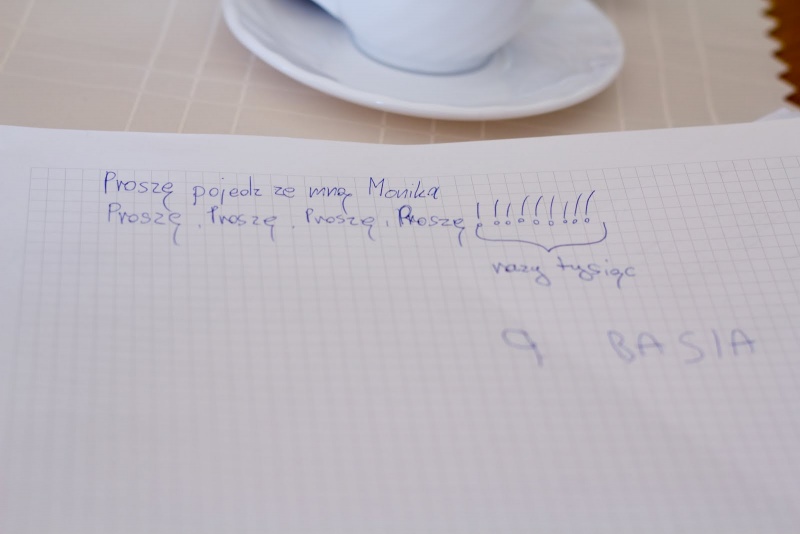 Proszę pojedz ze mną Monika
Proszę, Proszę, Proszę, Proszę !!!!!!!!!
razy tysiąc
9 BASIA